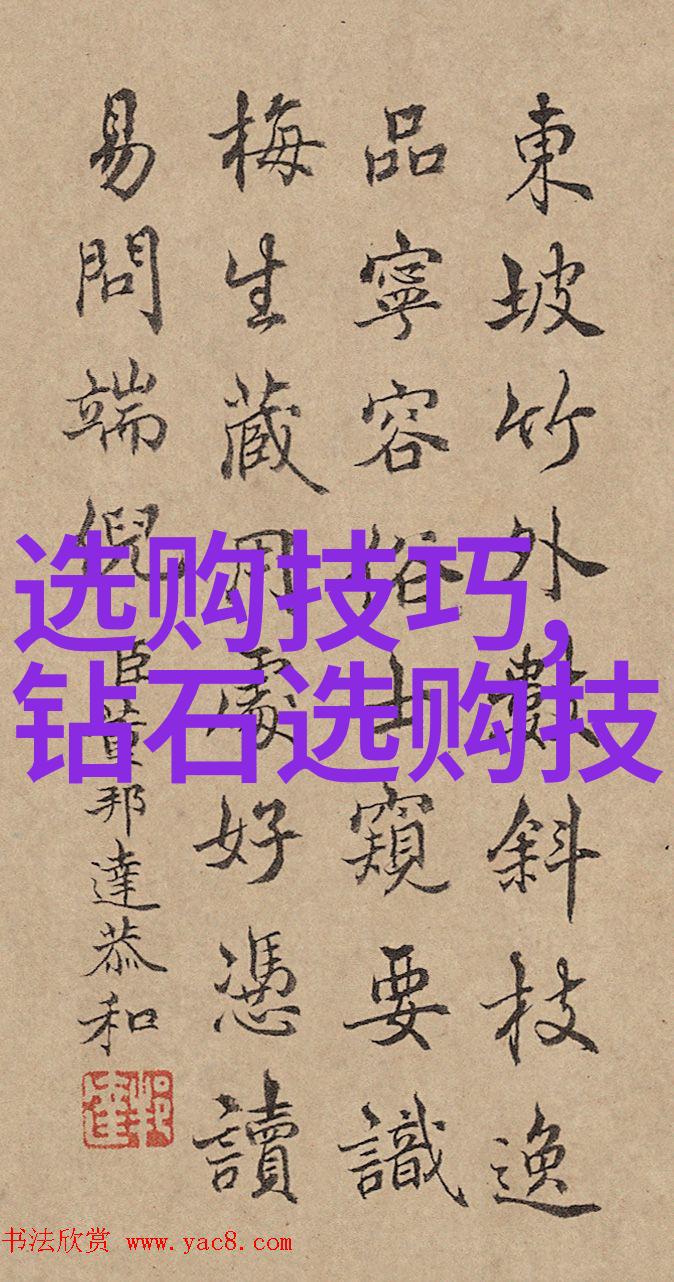 東坡竹外數斜枝逸
品寧容俗士窺要識
梅生蔵用處好憑讀
易問端倪
臣董邦達恭和
选购技巧,
钻石选购技
书法欣赏 www.yac8.com